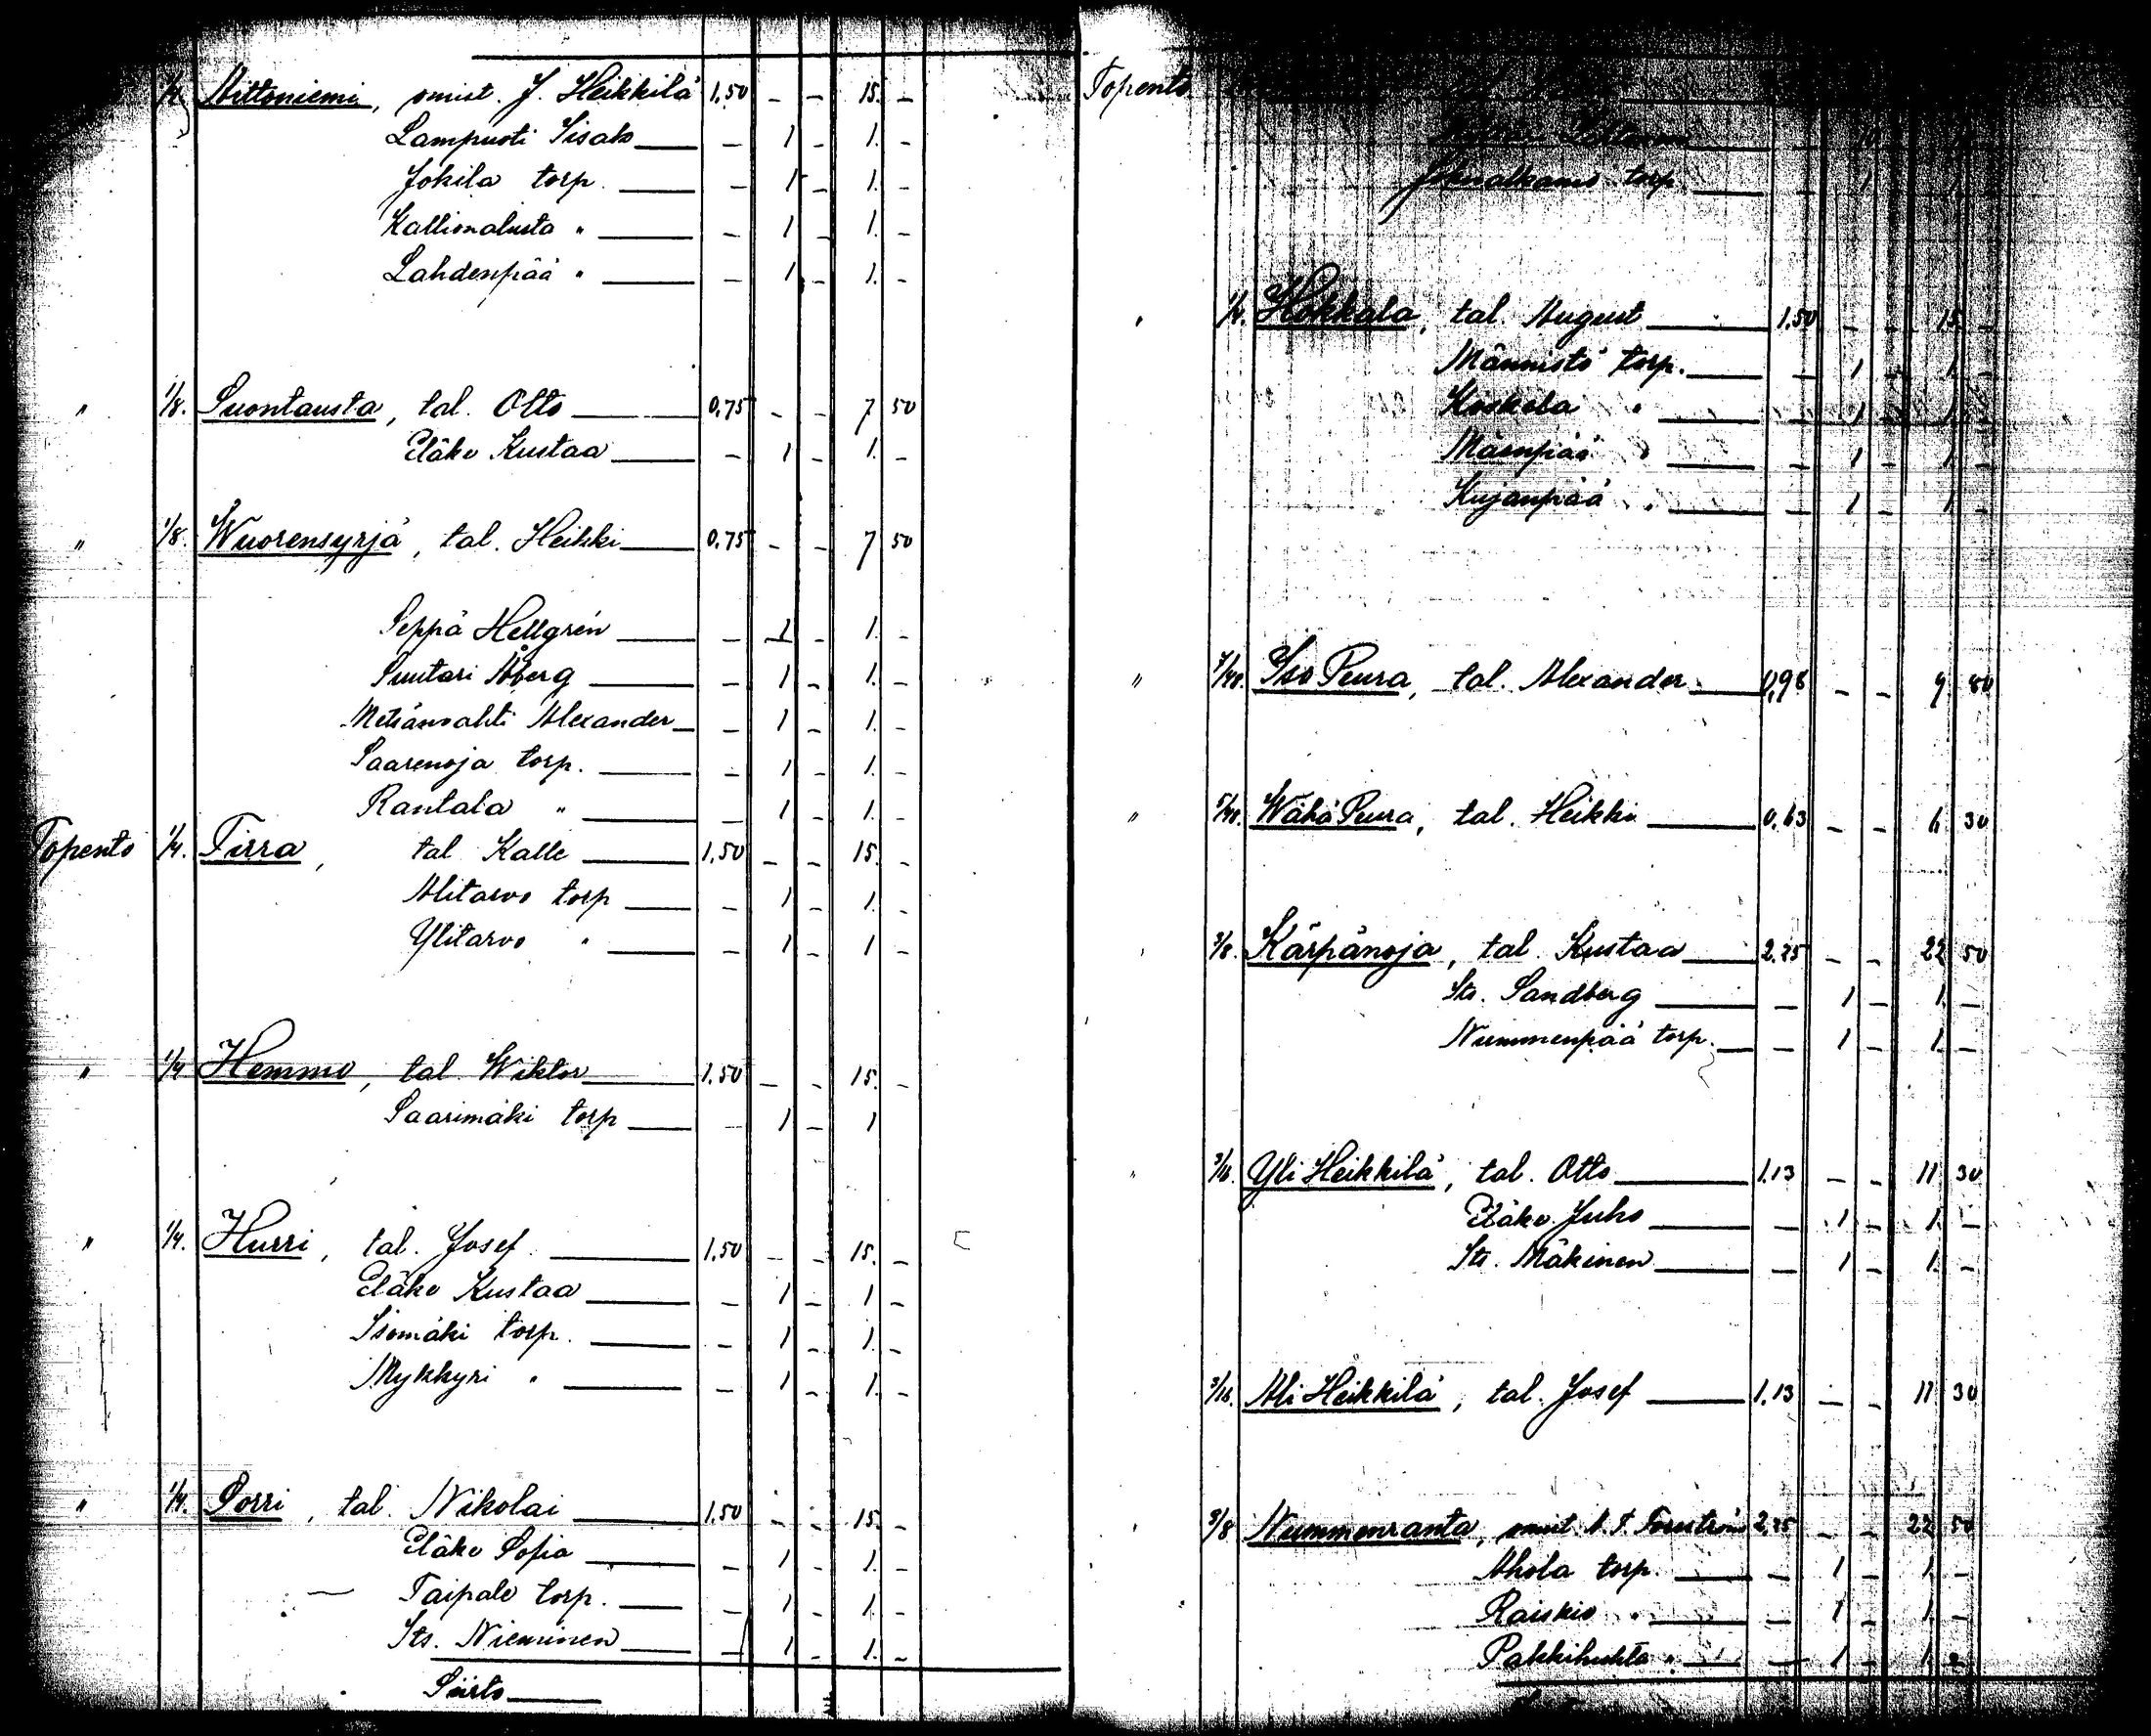 1/4 Aittoniemi, omist. J. Heikkilä 1,50 - - 15. -
Lampuoti Iisak - 1 - 1. -
Jokila torp. - 1 - 1. -
Kallionalusta " - 1 - 1. -
Lahdenpää " - 1 - 1. -
" 1/8. Suontausta, tal. Otto 0,75 - - 7 50
Eläke Kustaa - 1 - 1. -
" 1/8. Wuorensyrjä, tal. Heikki 0,75 - - 7 50
Seppä Hellgrén - 1 - 1. -
Suutari Åberg - 1 - 1. -
Metsänvahti Alexander - 1 - 1. -
Saarenoja torp. - 1 - 1. -
Rantala " - 1 - 1. -
Topento 1/4. Tirra, tal Kalle 1,50 - - 15. -
Alitarvo torp - 1 - 1. -
Ylitarvo " - 1 - 1 -
" 1/4 Hemmo, tal. Wiktor 1,50 - - 15. -
Saarimäki torp - 1 - 1
" 1/4. Hurri, tal. Josef 1,50 - - 15. -
Eläke Kustaa - 1 - 1 -
Isomäki torp. - 1 - 1. -
Mykkyri " - 1 - 1. -
" 1/4. Sorri, tal. Nikolai 1,50 - - 15. -
Eläke Sofia - 1 - 1. -
Taipale torp. - 1 - 1 -
Its. Nieminen - 1 - 1. -
Siirto
Topento
torp - 1 - 1
" 1/4. Hokkala, tal. August 1,50 - - 15 -
Männistö torp. - 1 - 1 -
Koskela " - 1 - 1 -
Mäenpää " - 1 - 1 -
Kujanpää " - 1 - 1 -
" 7/40. Iso Peura, tal. Alexander 0,98 - - 9 80
" 5/40. Wähä Peura, tal. Heikki 0,63 - - 6 30
" 3/8. Kärpänoja, tal. Kustaa 2,25 - - 22 50
Its. Sandberg - 1 - 1. -
Nummenpää torp. - 1 - 1. -
" 3/16. Yli Heikkilä, tal. Otto 1,13 - - 11 30
Eläke Juho - 1 - 1. -
Its. Mäkinen - 1 - 1. -
3/16. Ali Heikkilä, tal. Josef 1,13 - - 11 30
" 3/8 Nummenranta, omist. 2,25 - - 22 50
Ahola torp. - 1 - 1 -
Raiskio " - 1 - 1. -
Pakkihuhta " - 1 - 1